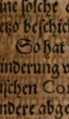 ine solche
etzo beschich
So hat
inderung v
ischen Con
ndere abge